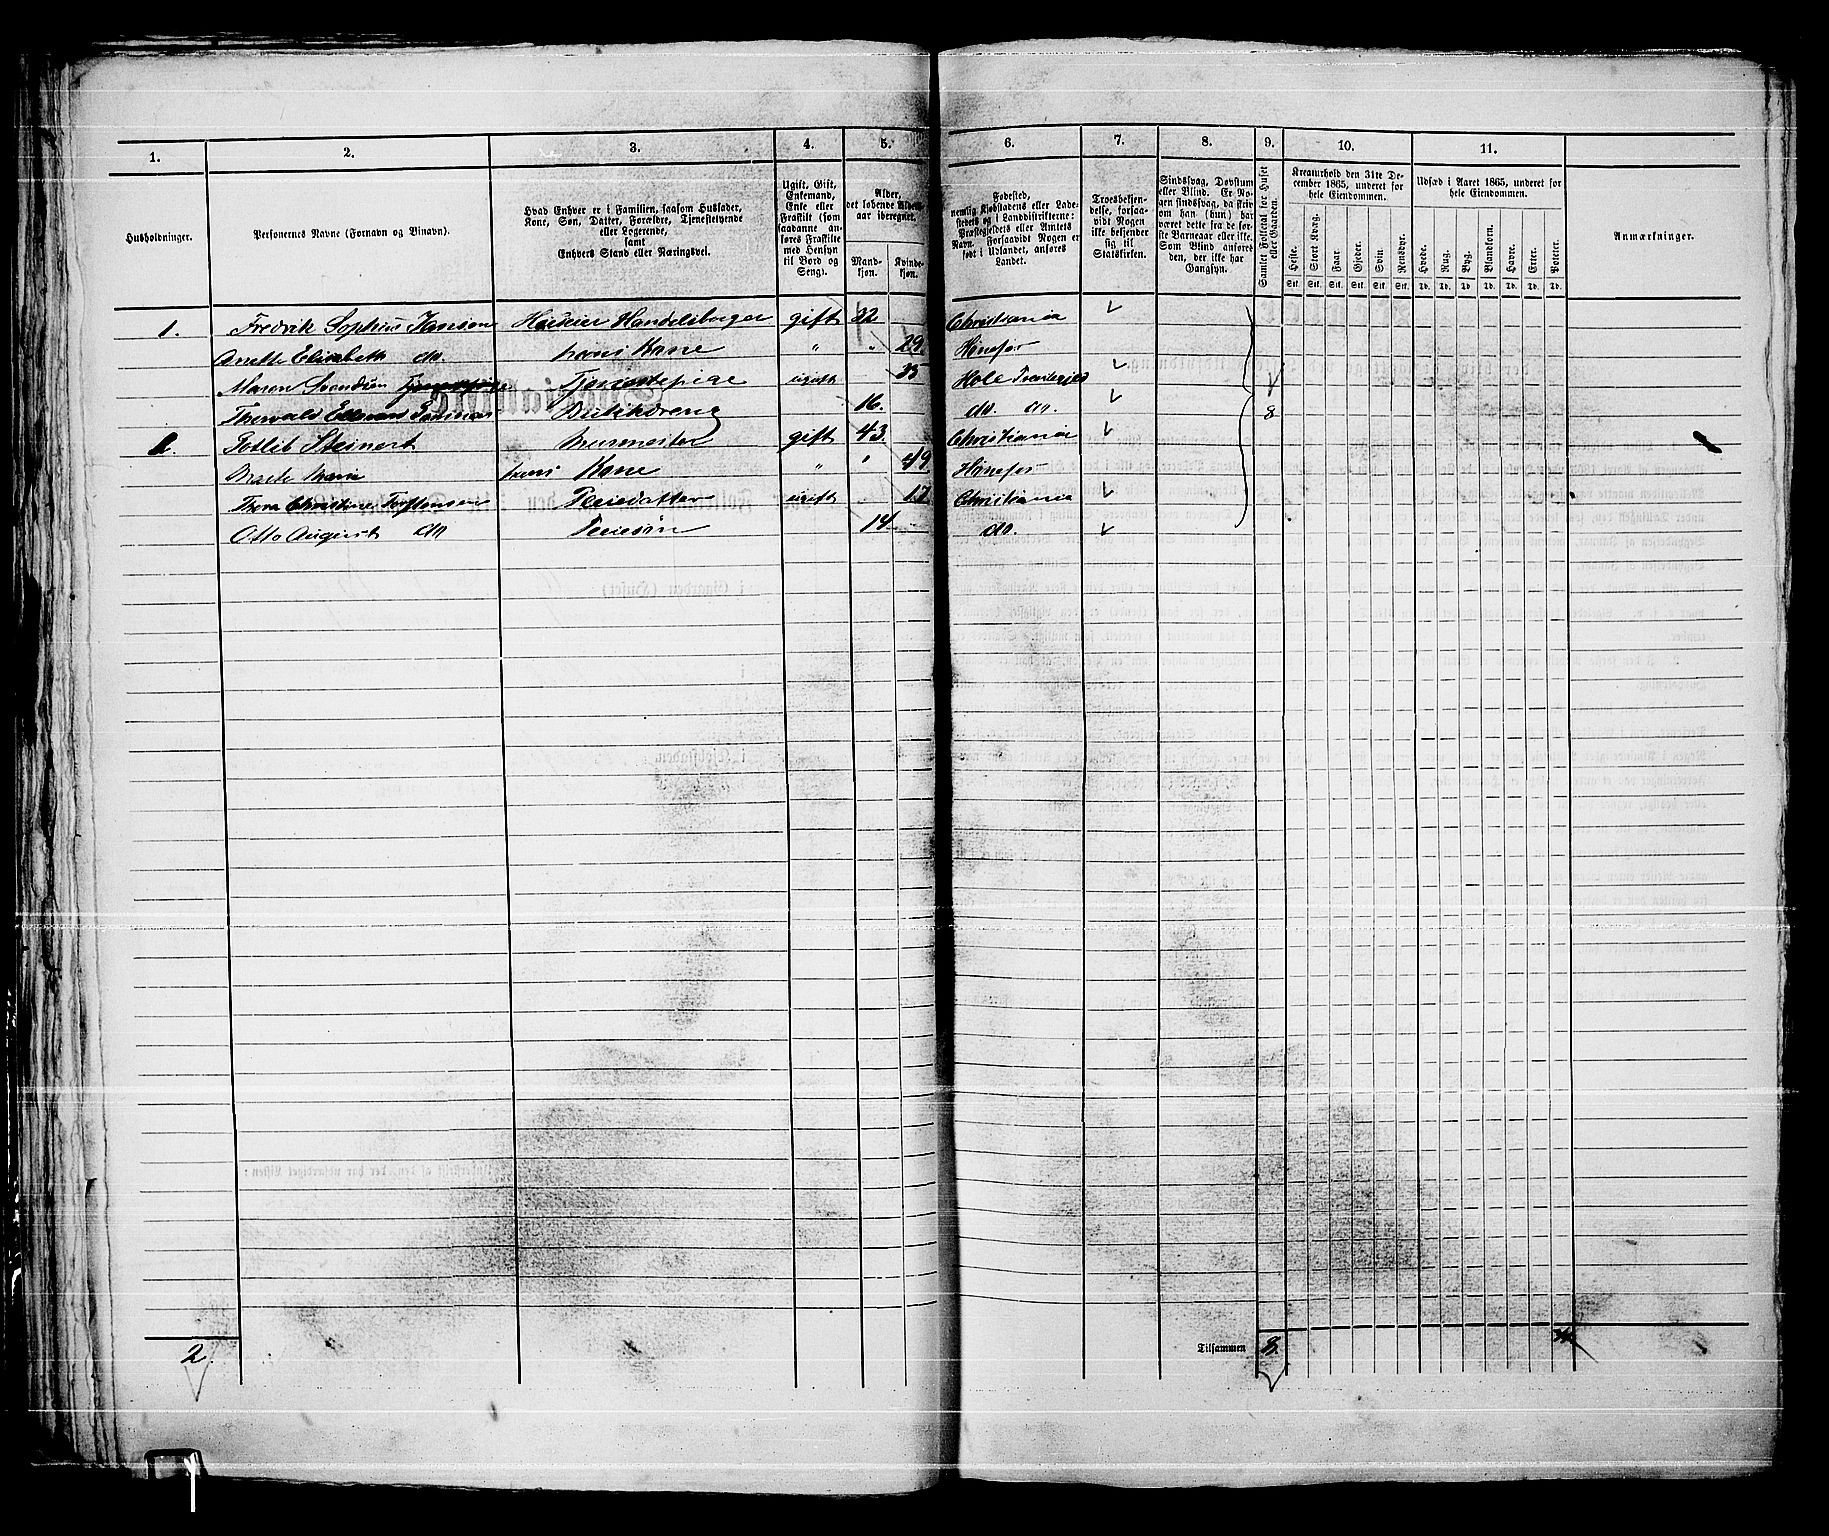 1. 2. 3. 4. 5. 6. 7. 8. 9. 10. 11.
Husholdninger.
Personernes Navne (Fornavn og Binavn).
Hvad Enhver er i Familien, saasom Husfader, Kone, Søn, Datter, Forældre, Tjenestetyende eller Logerende, samt Enhvers Stand eller Næringsvei.
Ugift, Gift, Enkemand, Enke eller Fraskilt (som saadanne anføres Fraskilte med Hensyn til Bord og Seng).
Alder, det løbende Alders-aar iberegnet.
Mandkjøn. Kvindekjøn.
Fødested, nemlig Kjøbstadens eller Ladestedets og i Landdistrikterne: Præstegjeldets eller Amtets Navn. Forsaavidt Nogen er født i Udlandet, anføres Landet.
Troesbekjendelse, forsaavidt Nogen ikke bekjender sig til Statskirken.
Sindssvag, Døvstum eller Blind. Er Nogen sindssvag, da skriv om han (hun) har været dette fra de første Barneaar eller ikke. Som Blind anføres den, der ikke har Gangsyn.
Samlet Folketal for Huset eller Gaarden.
Kreaturhold den 31te December 1865, underet for hele Eiendommen.
Heste. Stort Kvæg. Faar. Gjeder. Svin. Rensdyr.
Stk. Stk. Stk. Stk. Stk. Stk.
Udsæd i Aaret 1865, underet for hele Eiendommen.
Hvede. Rug. Byg. Blandkorn. Havre. Erter. Poteter.
Td. Td. Td. Td. Td. Td. Td.
Anmærkninger.
1. Fredrik Sophus Handelsborger gift 32 Christiania
Elisabeth do. Hans Kone " " 29 Hønefos
Maren Svendsen Tjenestepige ugift Hole
Thorvald Butikdreng 16 do. do. 8
Gotlib Steinert Murmester gift 43 Christiania
Marie Hans Kone " " 49 Hønefos
Thora Christine Torstensen Pleiedatter ugift 17 Christiania
Otto August do Pleiesøn 14 do.
2. Tilsammen 8.